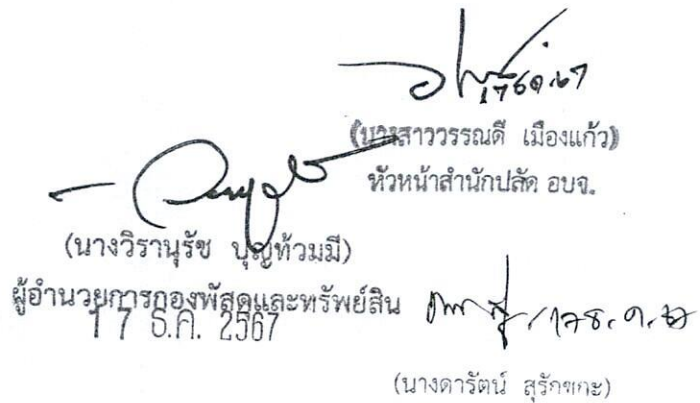 17 ธ.ค. 67
(นางสาววรรณดี เมืองแก้ว)
หัวหน้าสำนักปลัด อบจ.
(นางวิรานุรัช บุญท้วมมี)
ผู้อำนวยการกองพัสดุและทรัพย์สิน
17 ธ.ค. 2567
17 ธ.ค. 67
(นางดารัตน์ สุรักขกะ)